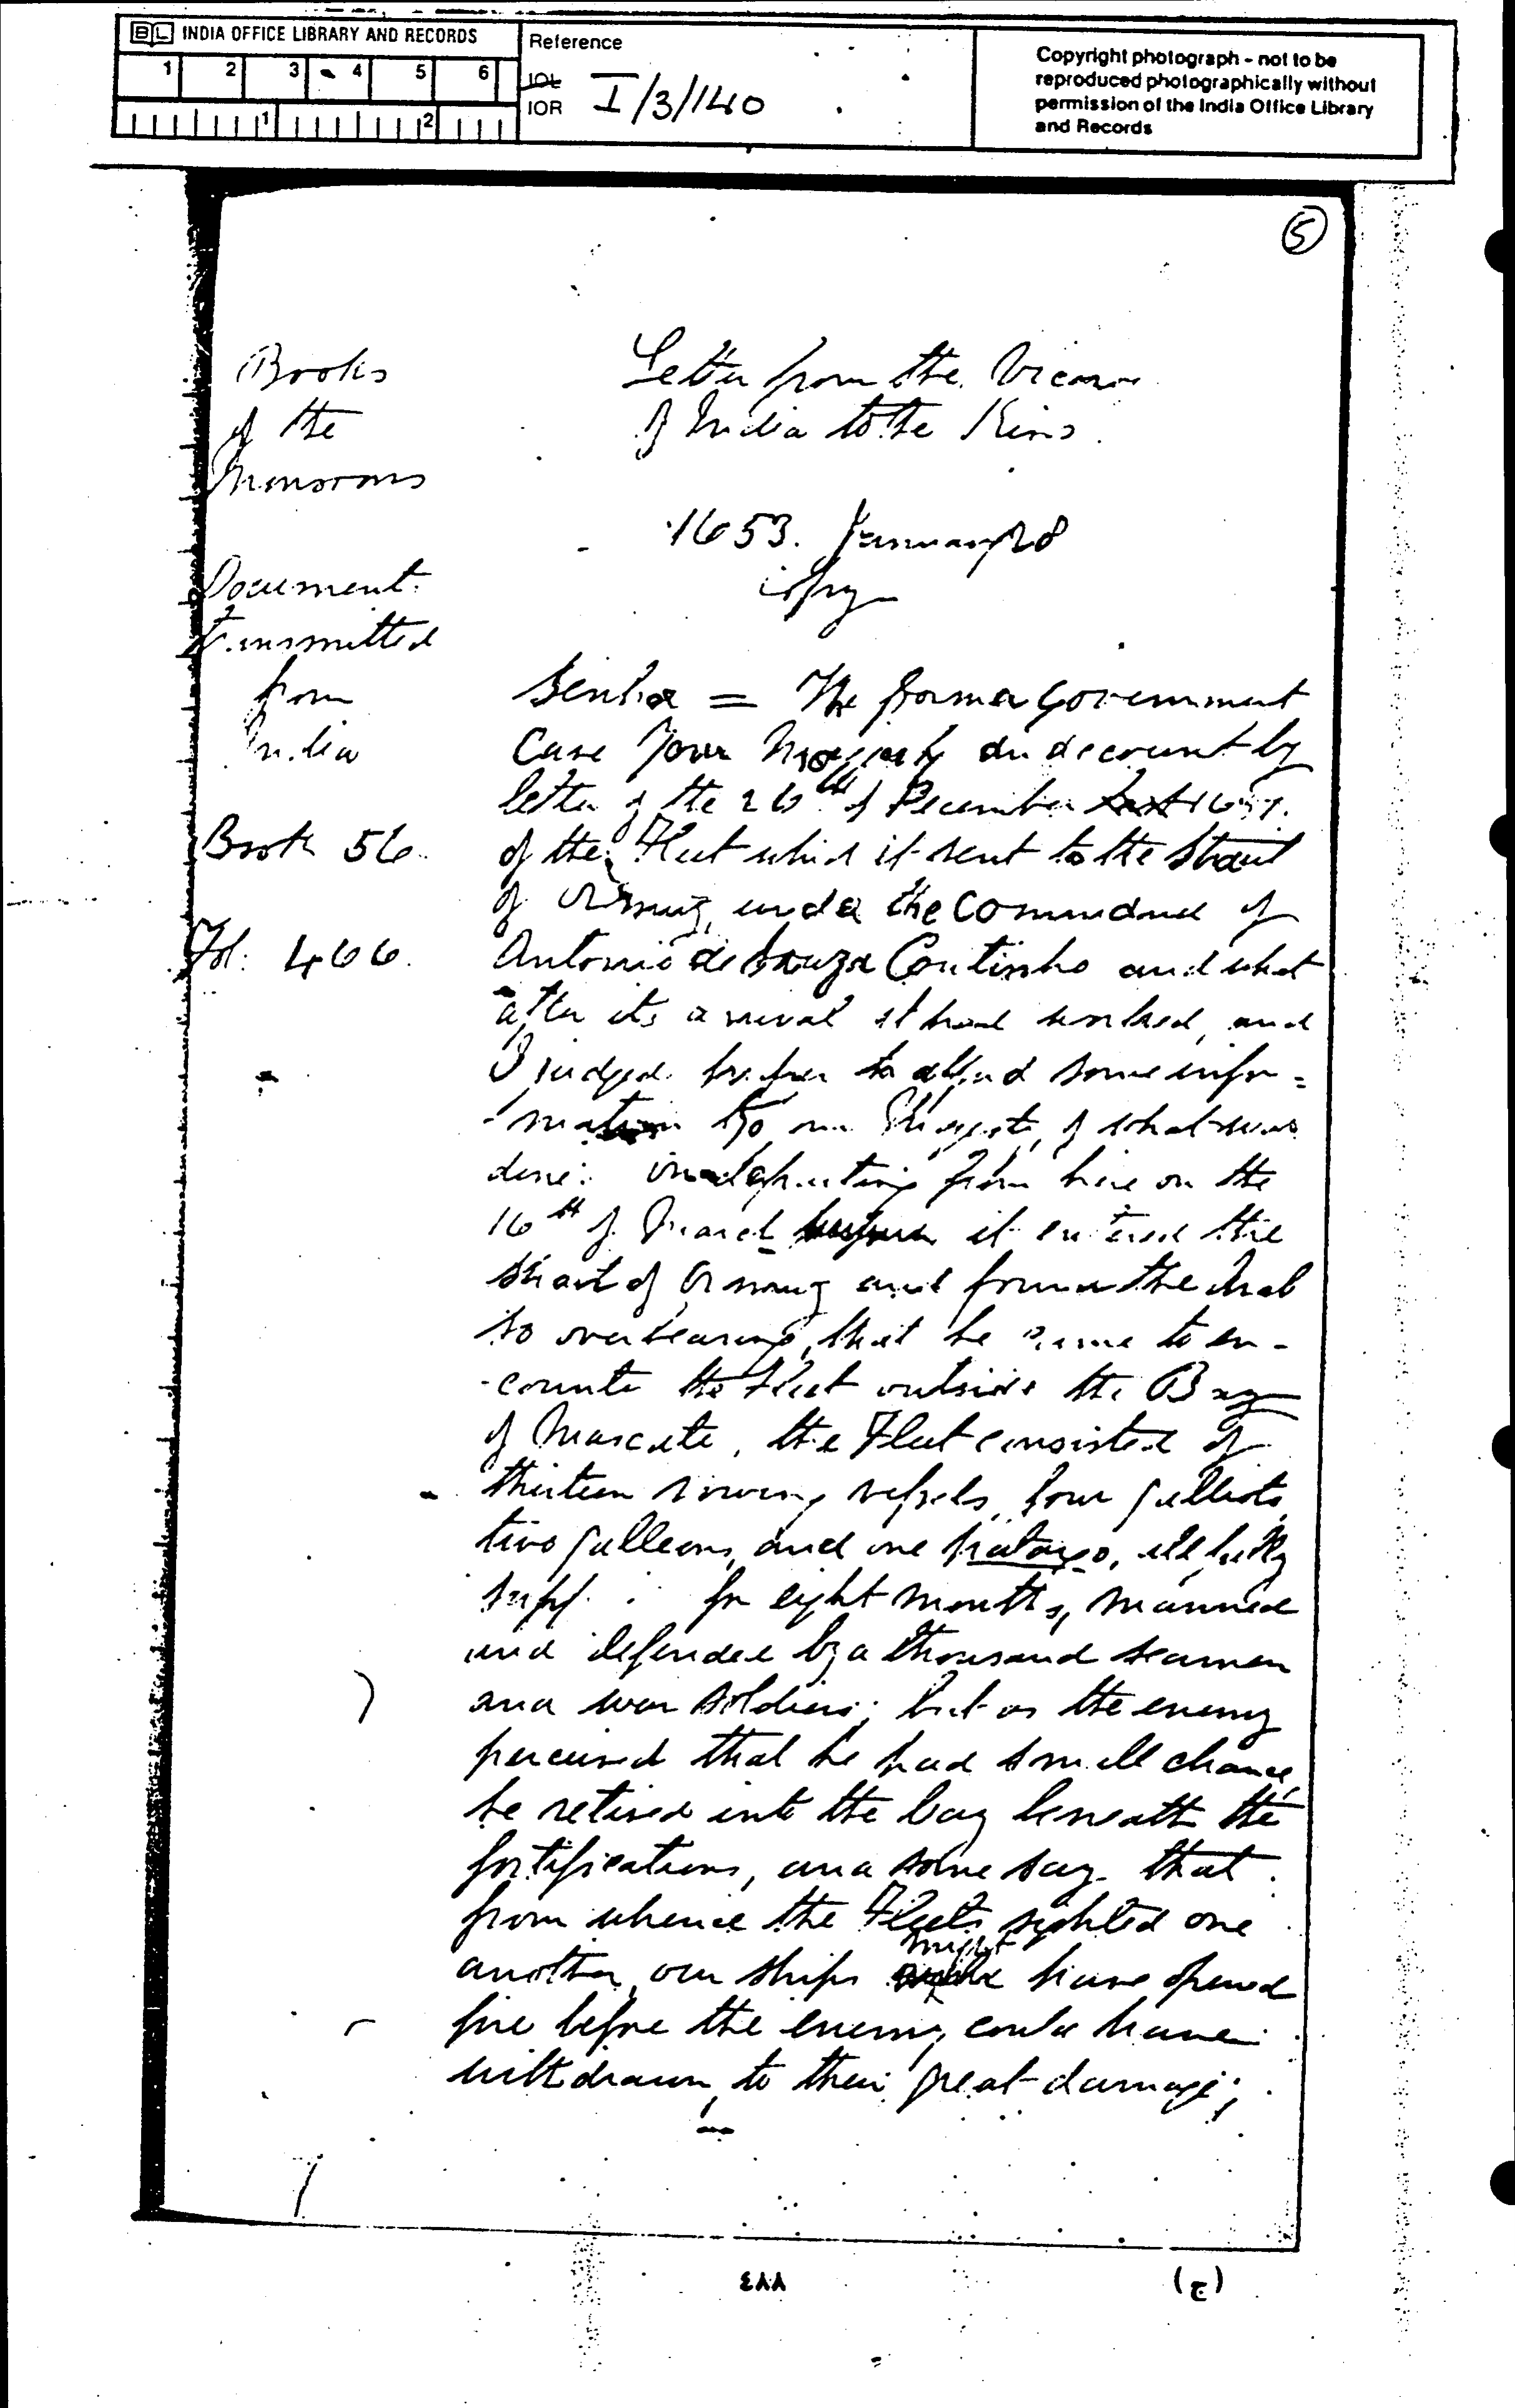 BL INDIA OFFICE LIBRARY AND RECORDS
1 2 3 4 5 6
1 2
Reference
IOL
IOR I/3/140
Copyright photograph - not to be
reproduced photographically without
permission of the India Office Library
and Records
5
Books
of the
Monsoons
Document
transmitted
from
India
Book 56
Fol: 466.
Letter from the Viceroy
of India to the King.
1653. January 28
Copy
Senhor = The former Government
Gave Your Majesty an account by
letter of the 26th of December last
of the Fleet which it sent to the Strait
of Ormuz, under the Command of
Antonio de Souza Coutinho and what
after its arrival it had worked, and
I judged proper to afford some infor=
-mation to your Majesty, of what was
done: in departing from here on the
16th of March it entered the
strait of Ormuz and found the Arab
so overbearing, that he came to en-
-counter the Fleet outside the Bay
of Mascate, the Fleet consisted of
thirteen rowing vessels, four galliots,
two galleons, and one pataxo, all fully
supp. for eight months, manned
and defended by a thousand seamen
and war soldiers; but as the enemy
perceived that he had small chance,
he retired into the bay beneath the
fortifications, and some say that
from whence the Fleets sighted one
another, our ships might have opened
fire before the enemy could have
withdrawn, to their great damage;
٤٨٨
(ج)